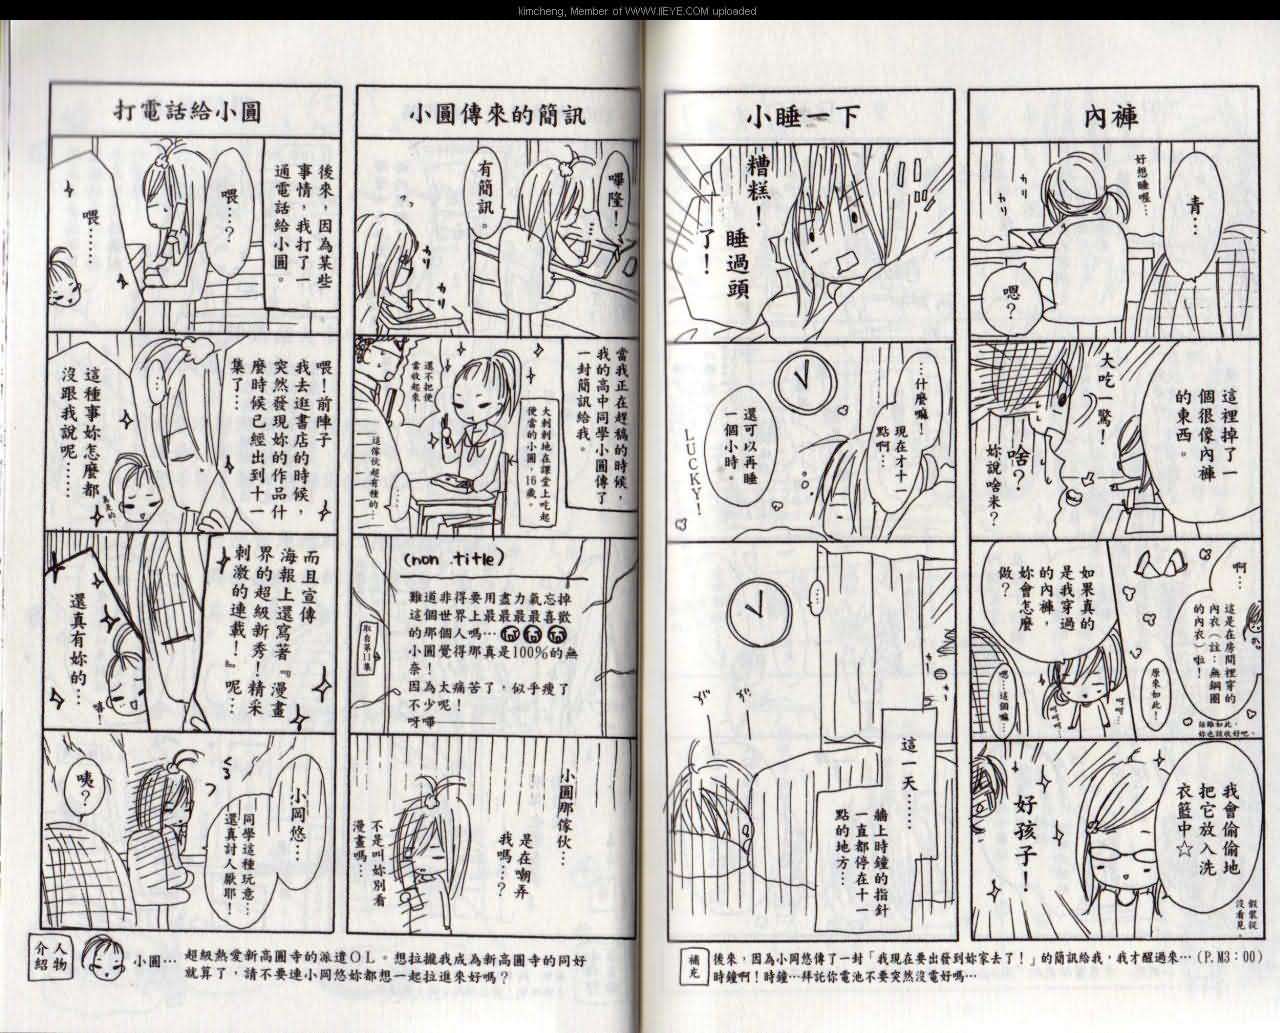 kimcheng, Member of WWW.IIEYE.COM uploaded
內褲
青…
好想睡喔…
カリ
カリ
嗯?
這裡掉了一
個很像內褲
的東西。
大吃一驚!
啥?
妳說啥米?
啊…
這是在房間裡穿的
內衣(註:無鋼圈
的內衣)啦!
話雖如此,
妳也該收好吧。
原來如此!
如果真的
是我穿過
的內褲,
妳會怎麼
做?
嗯…這個嘛…
我會偷偷地
把它放入洗
衣籃中☆
假裝從
沒看見。
好孩子!
小睡一下
糟糕!
睡過頭
了!
…什麼嘛!
現在才十一
點啊…
還可以再睡
一個小時。
LUCKY!
這一天……
牆上時鐘的指針
一直都停在十一
點的地方…
補充
後來,因為小岡悠傳了一封「我現在要出發到妳家去了!」的簡訊給我,我才醒過來…(P.M3:00)
時鐘啊!時鐘…拜託你電池不要突然沒電好嗎…
小圓傳來的簡訊
嗶隆!
有簡訊。
カリ
カリ
當我正在趕稿的時候,
我的高中同學小圓傳了
一封簡訊給我。
大剌剌地在課堂上吃起
便當的小圓,16歲。
還不把便
當收起來!
這傢伙超有種的…
(non title)
難道非得要用盡力氣忘掉
這個世界上最最最最喜歡
的那個人嗎…
小圓覺得那真是100%的無
奈!
因為太痛苦了,似乎瘦了
不少呢!
呀嘩
取自第11集
小圓那傢伙…
是在嘲弄
我嗎…?
不是叫妳別看
漫畫嗎…
打電話給小圓
後來,因為某些
事情,我打了一
通電話給小圓。
喂…?
喂……
喂!前陣子
我去逛書店的時候,
突然發現妳的作品什
麼時候已經出到十一
集了…
這種事妳怎麼都
沒跟我說呢……
而且宣傳
海報上還寫著『漫畫
界的超級新秀!精采
刺激的連載!』呢…
還真有妳的…
小岡悠…
同學這種玩意…
還真討人厭耶!
咦?
人物
介紹
小圓…
超級熱愛新高圓寺的派遣OL。想拉攏我成為新高圓寺的同好
就算了,請不要連小岡悠妳都想一起拉進來好嗎?